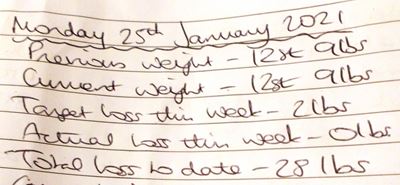 Monday 25th January 2021
Previous weight - 12st 9lbs
Current weight - 12st 9lbs
Target loss this week - 2lbs
Actual loss this week - 0lbs
Total loss to date - 28 lbs